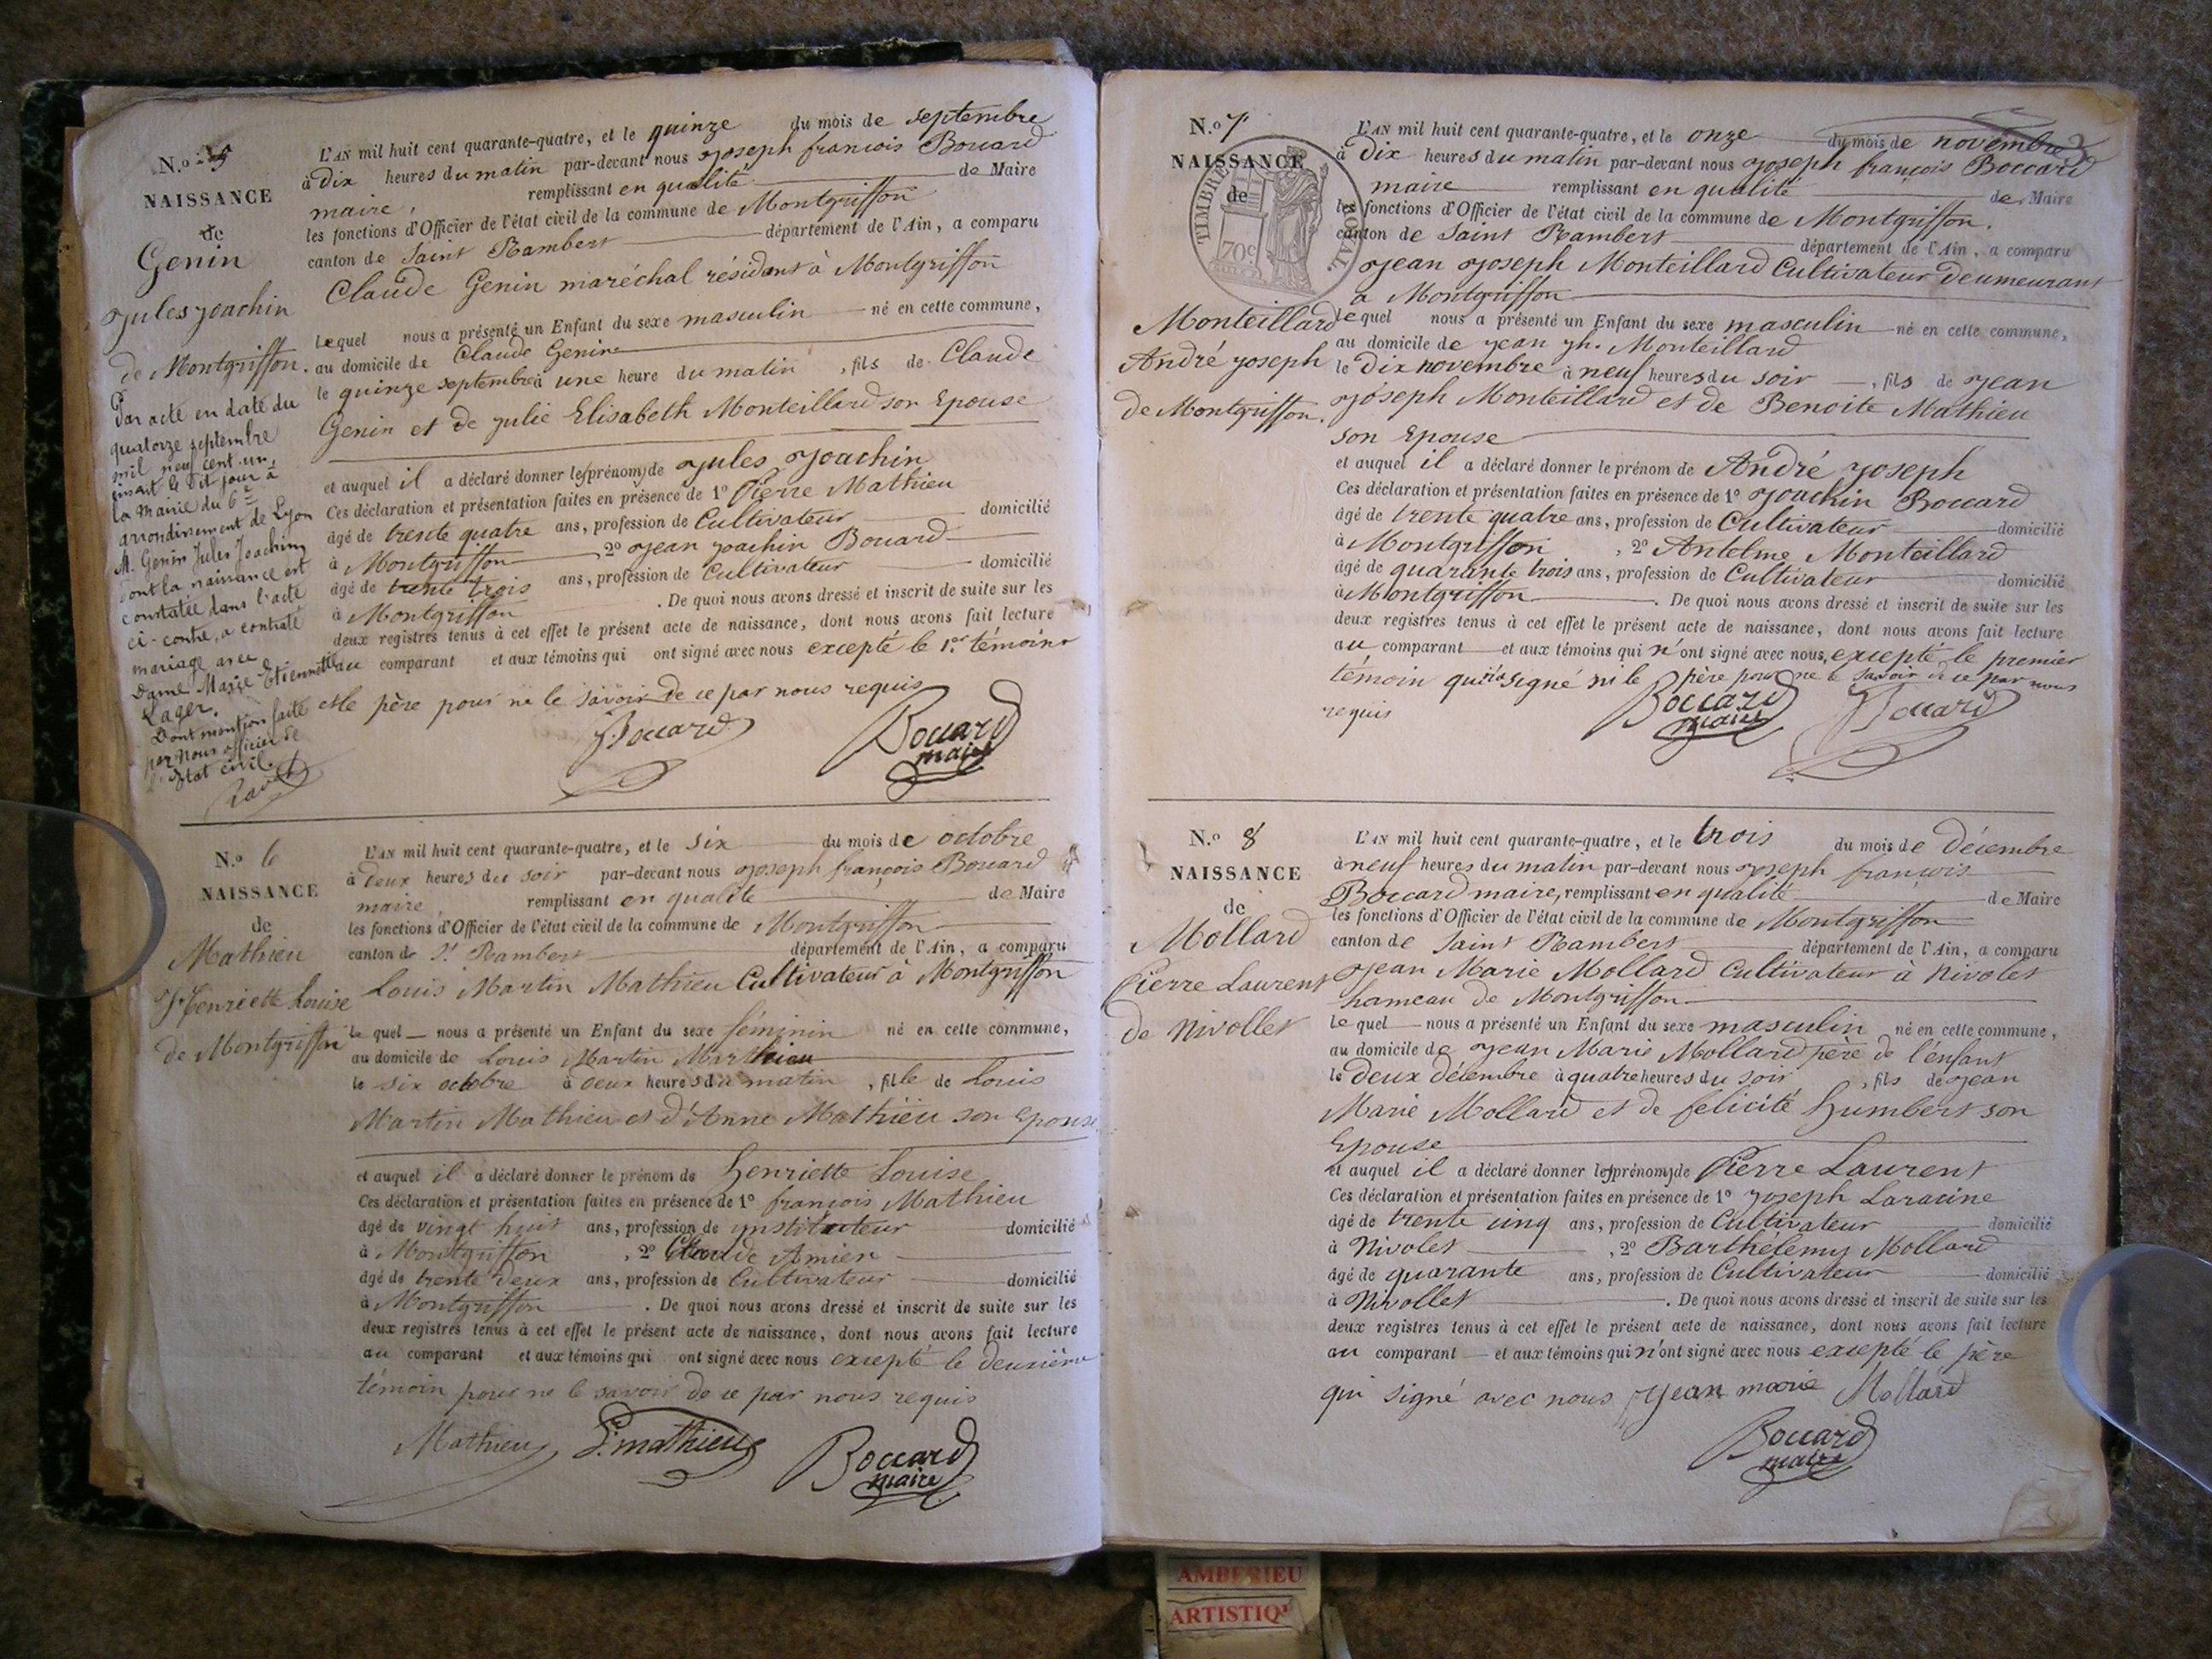 N.o 5
NAISSANCE
de
Genin
Jules Joachin
de Montgriffon.
Par acte en date du
quatorze septembre
mil neuf cent un,
inscrit le dit jour à
la Mairie du 6e
arrondissement de Lyon
M. Genin Jules Joachim
dont la naissance est
constatée dans l'acte
ci-contre, a contracté
mariage avec
Dame Marie Etiennette
Lager.
Dont mention faite
par Nous officier de
l'Etat civil.
L'AN mil huit cent quarante-quatre, et le quinze du mois de septembre
à Dix heures du matin par-devant nous Joseph francois Boccard
maire, remplissant en qualité de Maire
les fonctions d'Officier de l'état civil de la commune de Montgriffon
canton de Saint Rambert département de l'Ain, a comparu
Claude Genin maréchal résidant à Montgriffon
Lequel nous a présenté un Enfant du sexe masculin né en cette commune,
au domicile de Claude Genin
le quinze septembre à une heure du matin, fils de Claude
Genin et de Julie Elisabeth Monteillard son Epouse
et auquel il a déclaré donner le(prénom)de Jules Joachin
Ces déclaration et présentation faites en présence de 1o Pierre Mathieu
âgé de trente quatre ans, profession de Cultivateur domicilié
à Montgriffon, 2o Jean Joachin Boccard
âgé de trente trois ans, profession de Cultivateur domicilié
à Montgriffon. De quoi nous avons dressé et inscrit de suite sur les
deux registres tenus à cet effet le présent acte de naissance, dont nous avons fait lecture
au comparant et aux témoins qui ont signé avec nous excepté le 1er témoins
et le père pour ne le savoir de ce par nous requis
J. Boccard Boccard
maire
N.o 6
NAISSANCE
de
Mathieu
Henriette Louise
de Montgriffon
L'AN mil huit cent quarante-quatre, et le six du mois de octobre
à Deux heures du soir par-devant nous Joseph françois Boccard
maire remplissant en qualité de Maire
les fonctions d'Officier de l'état civil de la commune de Montgriffon
canton de St Rambert département de l'Ain, a comparu
Louis Martin Mathieu Cultivateur à Montgriffon
Le quel nous a présenté un Enfant du sexe féminin né en cette commune,
au domicile de Louis Martin Mathieu
le six octobre à deux heures du matin, fille de Louis
Martin Mathieu et d'Anne Mathieu son Epouse
et auquel il a déclaré donner le prénom de Henriette Louise
Ces déclaration et présentation faites en présence de 1o françois Mathieu
âgé de vingt huit ans, profession de instituteur domicilié
à Montgriffon, 2o Claude Amier
âgé de trente deux ans, profession de Cultivateur domicilié
à Montgriffon. De quoi nous avons dressé et inscrit de suite sur les
deux registres tenus à cet effet le présent acte de naissance, dont nous avons fait lecture
au comparant et aux témoins qui ont signé avec nous excepté le deuxième
témoin pour ne le savoir de ce par nous requis
Mathieu mathieu Boccard
maire
N.o 7
NAISSANCE
de
TIMBRE ROYAL
70c
Monteillard
André Joseph
de Montgriffon.
L'AN mil huit cent quarante-quatre, et le onze du mois de novembre
à Dix heures du matin par-devant nous Joseph françois Boccard
maire remplissant en qualité de Maire
les fonctions d'Officier de l'état civil de la commune de Montgriffon.
canton de Saint Rambert département de l'Ain, a comparu
Jean Joseph Monteillard Cultivateur Deumeurant
a Montgriffon
Lequel nous a présenté un Enfant du sexe masculin né en cette commune,
au domicile de Jean Jh. Monteillard
le Dix novembre à neuf heures du soir, fils de Jean
Joseph Monteillard et de Benoite Mathieu
son Epouse
et auquel il a déclaré donner le prénom de André Joseph
Ces déclaration et présentation faites en présence de 1o Joachin Boccard
âgé de trente quatre ans, profession de Cultivateur domicilié
à Montgriffon, 2o Antelme Monteillard
âgé de quarante trois ans, profession de Cultivateur domicilié
à Montgriffon. De quoi nous avons dressé et inscrit de suite sur les
deux registres tenus à cet effet le présent acte de naissance, dont nous avons fait lecture
au comparant et aux témoins qui n'ont signé avec nous, excepté le premier
témoin qui a signé ni le père pour ne le savoir de ce par nous
requis
Boccard J Boccard
maire
N.o 8
NAISSANCE
de
Mollard
Pierre Laurent
de Nivollet
L'AN mil huit cent quarante-quatre, et le trois du mois de Décembre
à neuf heures du matin par-devant nous Joseph françois
Boccard maire, remplissant en qualité de Maire
les fonctions d'Officier de l'état civil de la commune de Montgriffon
canton de Saint Rambert département de l'Ain, a comparu
Jean Marie Mollard Cultivateur à Nivolet
hameau de Montgriffon
Le quel nous a présenté un Enfant du sexe masculin né en cette commune,
au domicile de Jean Marie Mollard père de l'enfant
le Deux Décembre à quatre heures du soir, fils de Jean
Marie Mollard et de felicité humbert son
Epouse
et auquel il a déclaré donner le(prénom)de Pierre Laurent
Ces déclaration et présentation faites en présence de 1o Joseph Laracine
âgé de trente cinq ans, profession de Cultivateur domicilié
à Nivolet, 2o Barthélemy Mollard
âgé de quarante ans, profession de Cultivateur domicilié
à Nivollet. De quoi nous avons dressé et inscrit de suite sur les
deux registres tenus à cet effet le présent acte de naissance, dont nous avons fait lecture
au comparant et aux témoins qui n'ont signé avec nous excepté le père
qui signé avec nous Jean marie Mollard
Boccard
maire
AMBERIEU
ARTISTIQ